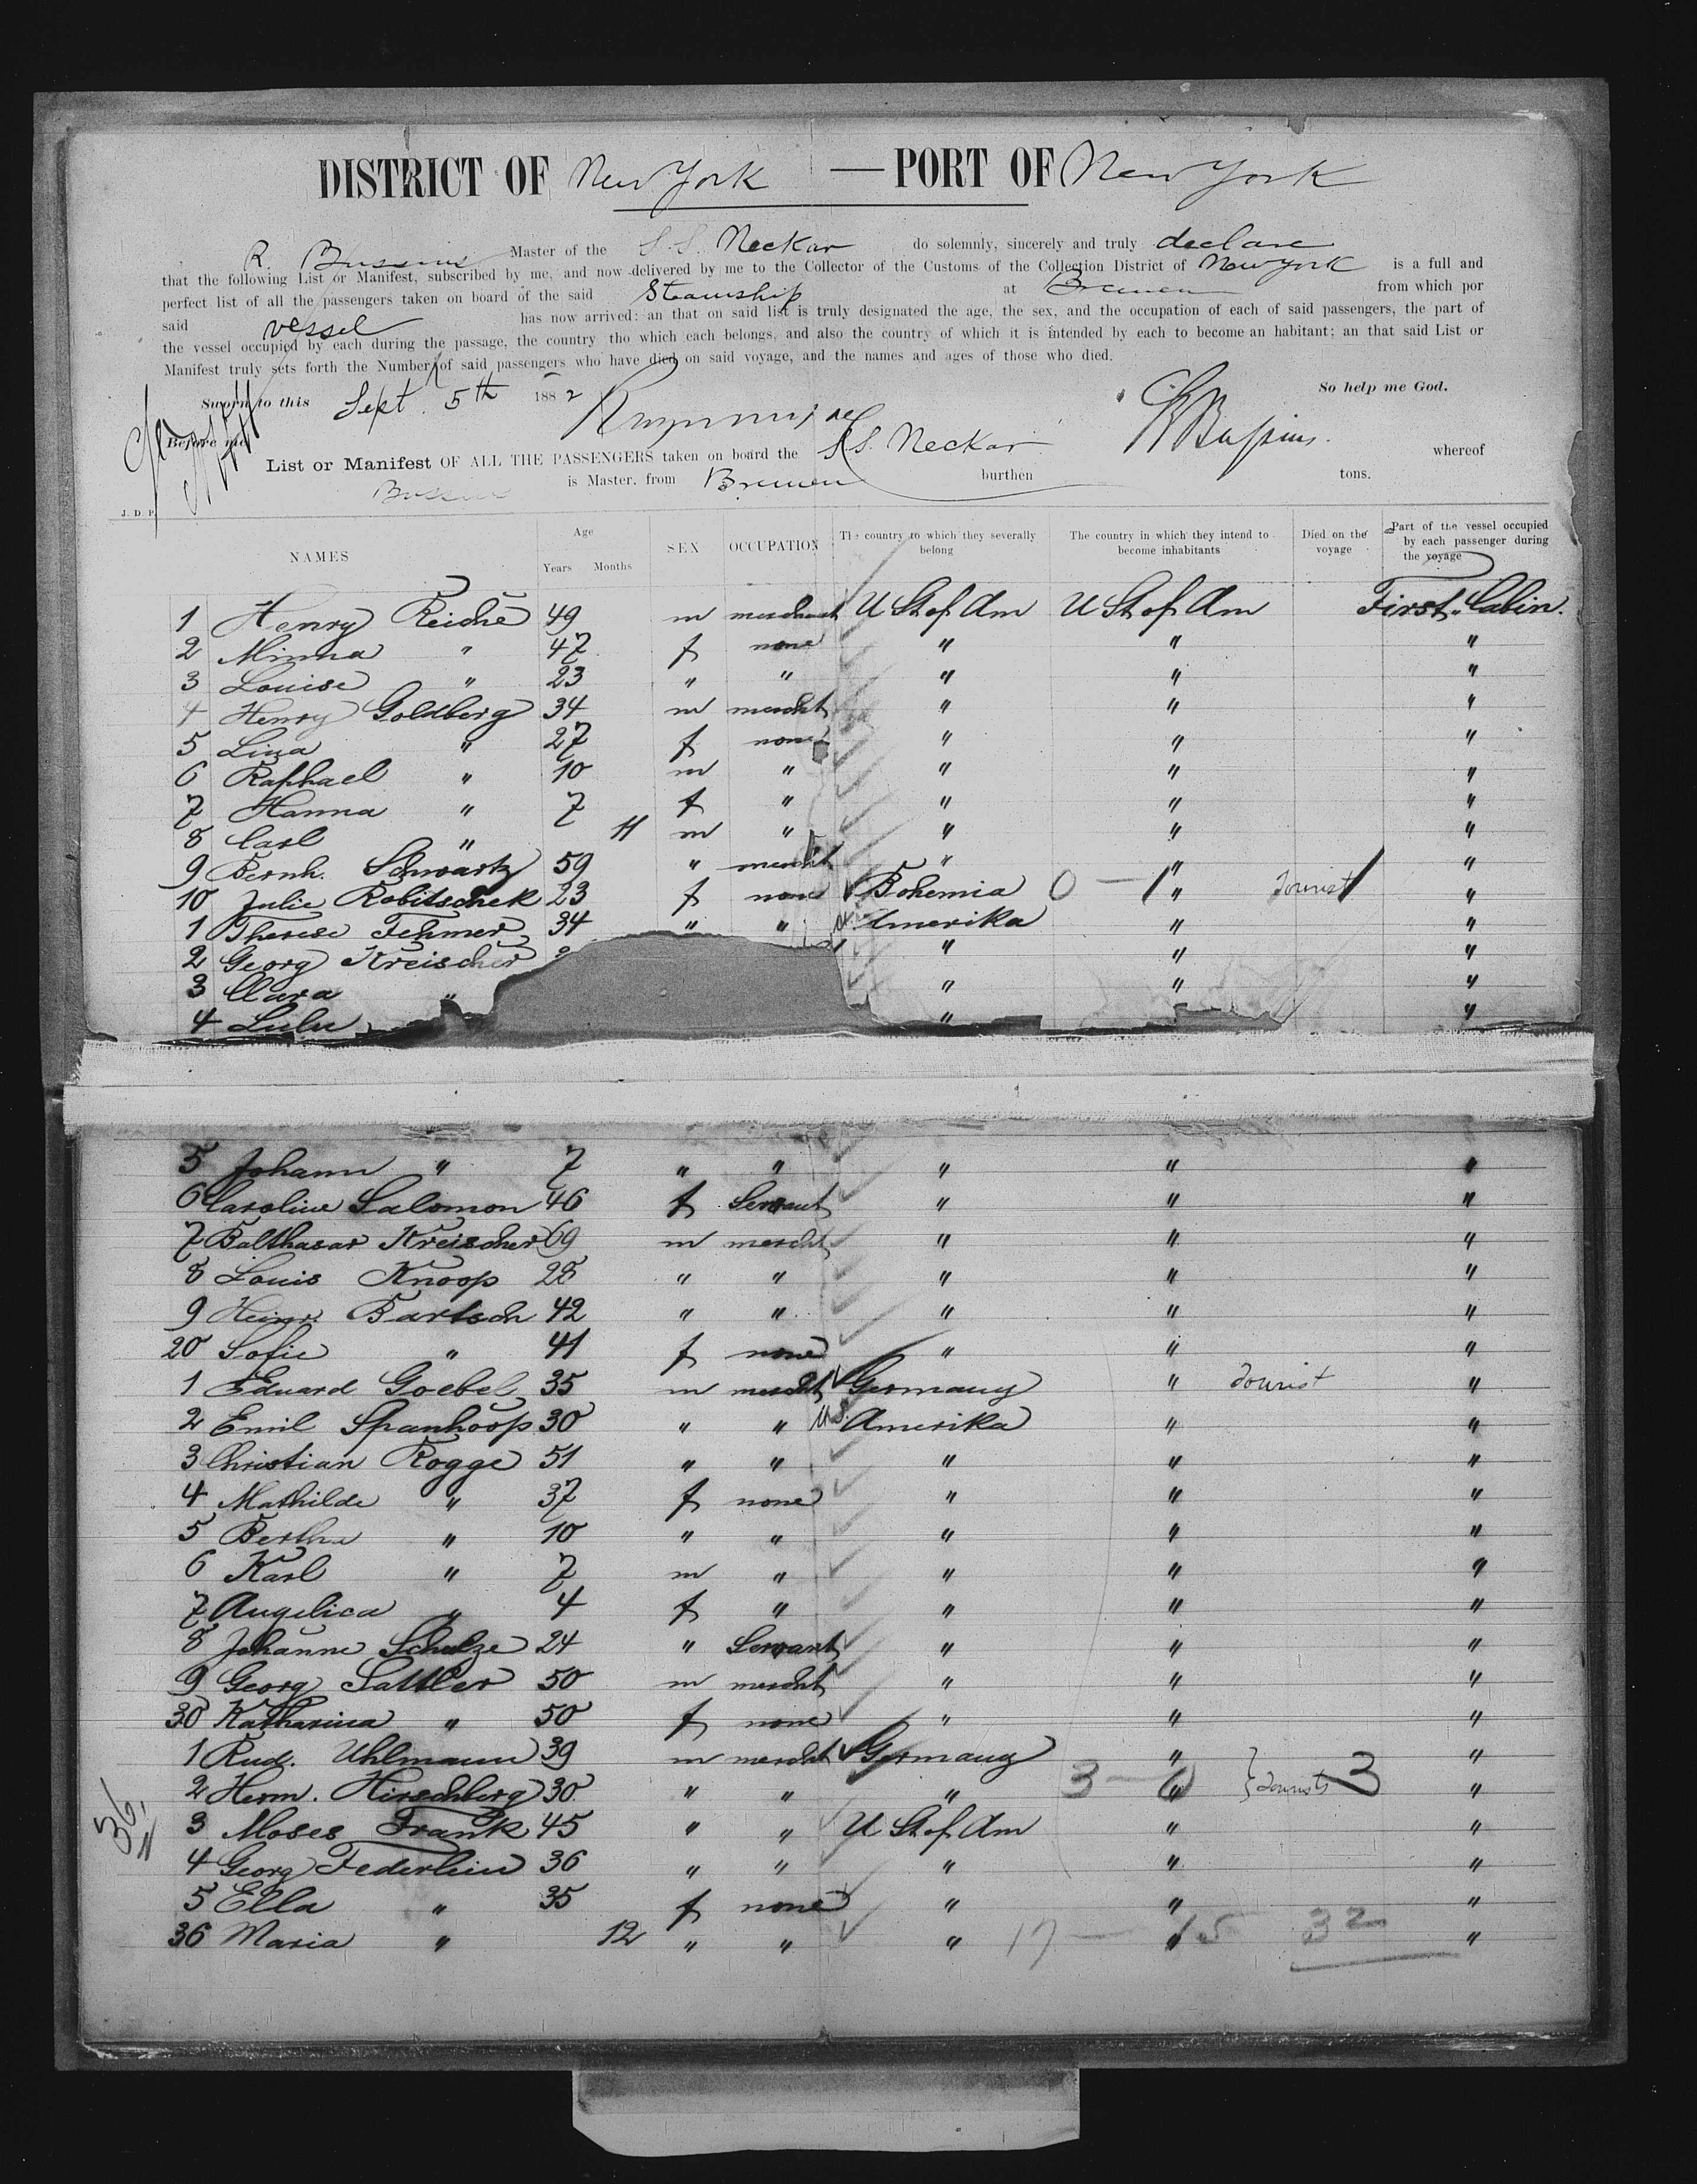 DISTRICT OF New York — PORT OF New York
R. Bussius Master of the S.S. Neckar do solemnly, sincerely and truly declare
that the following List or Manifest, subscribed by me, and now delivered by me to the Collector of the Customs of the Collection District of New York is a full and
perfect list of all the passengers taken on board of the said Steamship at Bremen from which por
said vessel has now arrived: an that on said list is truly designated the age, the sex, and the occupation of each of said passengers, the part of
the vessel occupied by each during the passage, the country tho which each belongs, and also the country of which it is intended by each to become an habitant; an that said List or
Manifest truly sets forth the Number of said passengers who have died on said voyage, and the names and ages of those who died.
So help me God.
Sworn to this Sept. 5th 1882
Before me R Bussius.
List or Manifest OF ALL THE PASSENGERS taken on board the S.S. Neckar whereof
Bussius is Master, from Bremen burthen tons.
J. D. P.
NAMES Age Years Months SEX OCCUPATION The country to which they severally belong The country in which they intend to become inhabitants Died on the voyage Part of the vessel occupied by each passenger during the voyage
1 Henry Reiche 49 m merchant U St of Am U St of Am First Cabin.
2 Minna " 47 f none " " "
3 Louise " 23 " " " " "
4 Henry Goldberg 34 m mercht " " "
5 Lina " 27 f none " " "
6 Raphael " 10 m " " " "
7 Hanna " 7 f " " " "
8 Carl " 11 m " " " "
9 Bernh. Schwartz 59 " mercht " " "
10 Julie Robitschek 23 f none Bohemia 0 — 1 " Tourist 1 "
1 Therese Fehmer 34 " " Amerika " "
2 Georg Kreischer " " "
3 Clara " " " "
4 Lulu " "
5 Johann " 7 " " " " "
6 Caroline Salomon 46 f Servant " " "
7 Balthasar Kreischer 69 m mercht " " "
8 Louis Knoop 28 " " " " "
9 Heinr. Bartsch 42 " " " " "
20 Sofie " 41 f none " " "
1 Eduard Goebel 35 m mercht Germany " Tourist "
2 Emil Spanhoop 30 " " U.S. Amerika " "
3 Christian Rogge 51 " " " " "
4 Mathilde " 37 f none " " "
5 Bertha " 10 " " " " "
6 Karl " 7 m " " " "
7 Angelica " 4 f " " " "
8 Johanne Schulze 24 " Servant " " "
9 Georg Sattler 50 m mercht " " "
30 Katharina " 50 f none " " "
1 Rud. Uhlmann 39 m mercht Germany " "
2 Herm. Hirschberg 30 " " " 3 — 0 " Tourists 3 "
3 Moses Frank 45 " " U St of Am " "
4 Georg Federlein 36 " " " " "
5 Ella " 35 f none " " "
36 Maria " 12 " " " 17 — 15 " 32 "
36